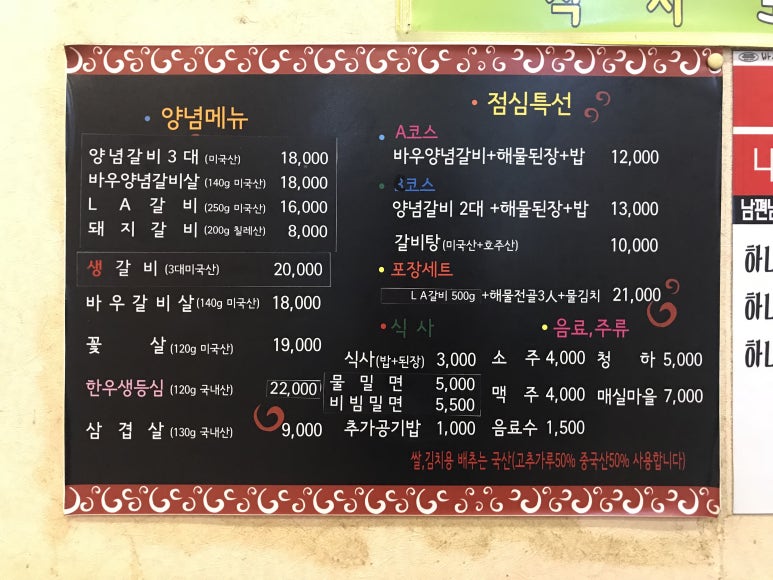 양념메뉴
양념갈비 3 대 (미국산) 18,000
바우양념갈비살 (140g 미국산) 18,000
L A 갈 비 (250g 미국산) 16,000
돼 지 갈 비 (200g 칠레산) 8,000
생 갈 비 (3대미국산) 20,000
바 우 갈 비 살 (140g 미국산) 18,000
꽃 살 (120g 미국산) 19,000
한우생등심 (120g 국내산) 22,000
삼 겹 살 (130g 국내산) 9,000
점심특선
A코스
바우양념갈비+해물된장+밥 12,000
B코스
양념갈비 2대 +해물된장+밥 13,000
갈비탕(미국산+호주산) 10,000
포장세트
L A갈비 500g +해물전골3人+물김치 21,000
식 사
식사(밥+된장) 3,000
물 밀 면 5,000
비 빔 밀 면 5,500
추가공기밥 1,000
음료,주류
소 주 4,000 청 하 5,000
맥 주 4,000 매실마을 7,000
음료수 1,500
쌀,김치용 배추는 국산(고추가루50% 중국산50% 사용합니다)
남편
하
하
하